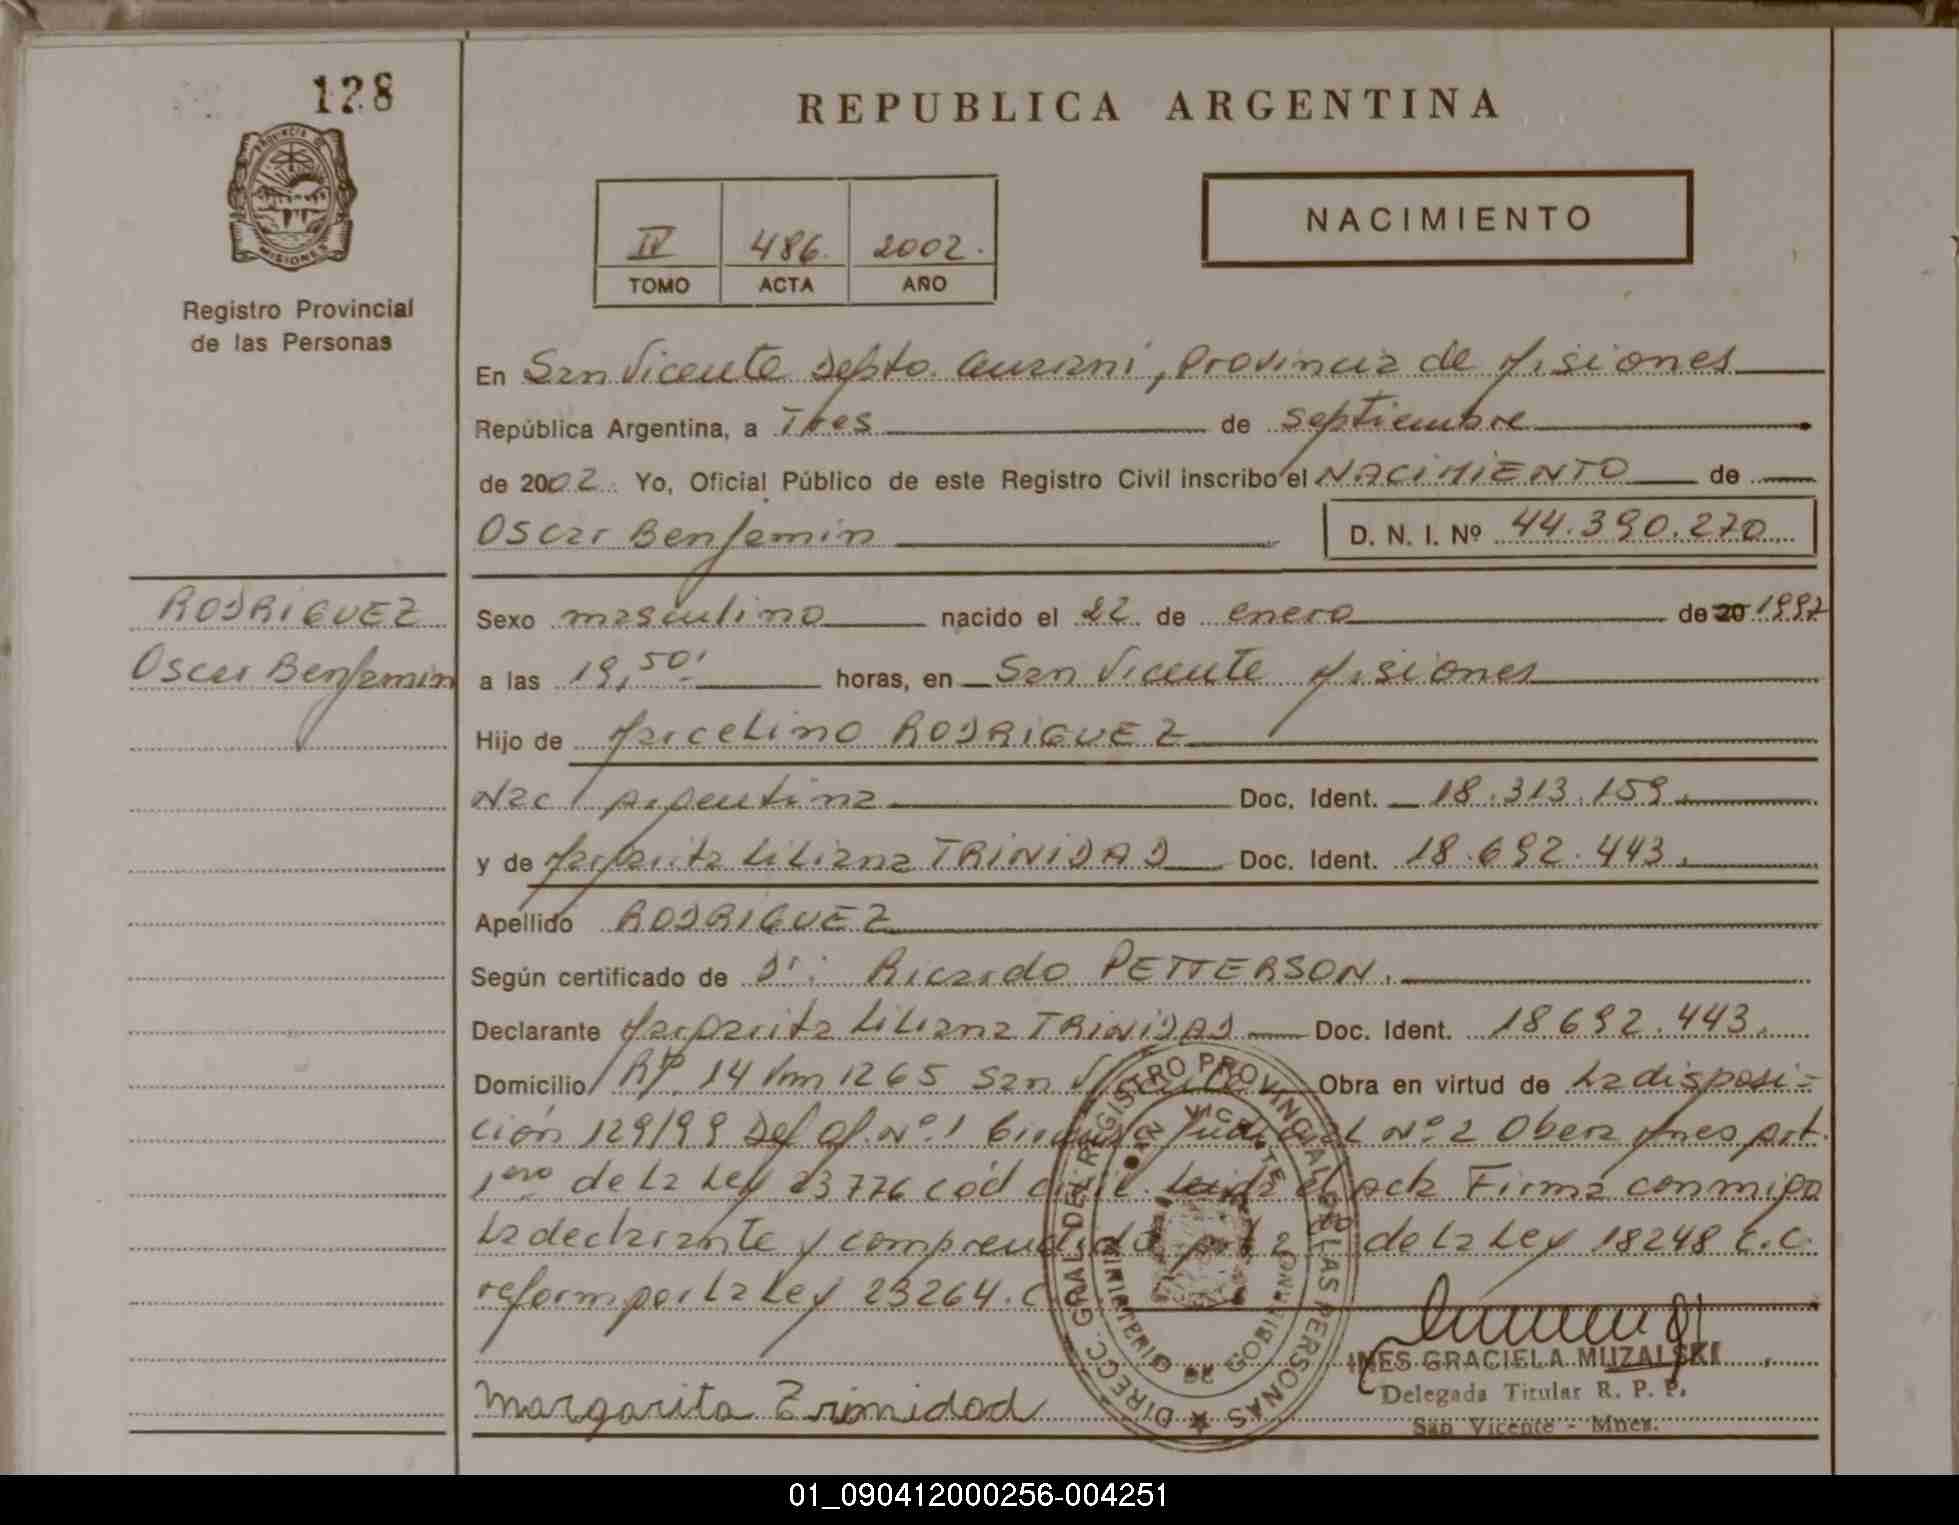 128
PROVINCIA DE
MISIONES
Registro Provincial
de las Personas
REPUBLICA ARGENTINA
IV 486. 2002.
TOMO ACTA AÑO
NACIMIENTO
En San Vicente Depto. Guarani, Provincia de Misiones
República Argentina, a Tres de Septiembre
de 2002. Yo, Oficial Público de este Registro Civil inscribo el NACIMIENTO de
Oscar Benjamin D. N. I. Nº 44.390.270
RODRIGUEZ
Oscar Benjamin
Sexo masculino nacido el 22 de enero de 20 1997
a las 19,50' horas, en San Vicente Misiones
Hijo de Marcelino RODRIGUEZ
Nac argentina Doc. Ident. 18.313.159.
y de Margarita Liliana TRINIDAD Doc. Ident. 18.692.443.
Apellido RODRIGUEZ
Según certificado de Dr: Ricardo PETTERSON.
Declarante Margarita Liliana TRINIDAD Doc. Ident. 18692.443.
Domicilio RP 14 km 1265 San Vicente Obra en virtud de La disposi-
ción 129/99 Def of. Nº 1 Judicial Nº 2 Obera Mnes art.
1ero de la Ley 23776 cód civil. Leida el acta Firma conmigo
la declarante y de la Ley 18248 C.C.
reform por la Ley 23264.
DIRECC. GRAL. DEL REGISTRO PROVINCIAL DE LAS PERSONAS
SAN VICENTE
MINISTERIO DE GOBIERNO
INES GRACIELA MUZALSKI
Delegada Titular R. P. P.
San Vicente - Mnes.
Margarita Trinidad
01_090412000256-004251